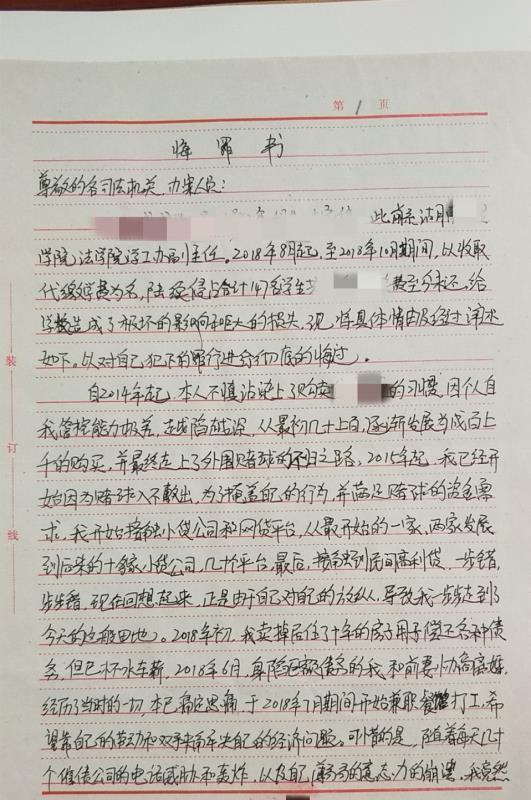 第 1 页
悔罪书
尊敬的各司法机关、办案人员:
学院法学院学工办副主任。2018年8月起,至2018年10月期间,以收取
代缴学费为名,陆续侵占合计47名学生 费至今未还,给
学校造成了极坏的影响和巨大的损失,现将具体情由及经过详述
如下。以对自己犯下的罪行进行彻底的悔过。
自2014年起,本人不慎沾染上了购买 的习惯,因个自
我管控能力极差,越陷越深,从最初几十上百,逐渐发展成百上
千的购买,并最终走上了外围赌球的不归之路。2015年起,我已经开
始因为赌球入不敷出,为了掩盖自己的行为,并满足赌球的资金需
求,我开始接触小贷公司和网贷平台,从最开始的一家、两家发展
到后来的十多家小贷公司,几十个平台,最后,接触到民间高利贷,一步错,
步步错,现在回想起来,正是由于自己对自己的放纵,导致我一步步走到了
今天的这般田地。2018年初,我卖掉居住了十年的房子用于偿还各种债
务,但已杯水车薪,2018年6月,身陷巨额债务的我和前妻协商离婚,
经历了当时的一切,本已痛定思痛,于2018年7月期间开始兼职 打工,希
望靠自己的劳动和双手来解决自己的经济问题。可惜的是,随着每天几十
个催债公司的电话威胁和轰炸,以及自 的意志力的崩溃,我竟然
装
订
线